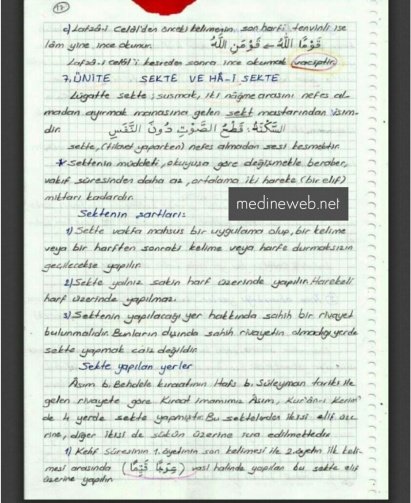 17
c) Lafzâ-i Celâl'den önceki kelimenin, son harfi tenvinli ise
lâm yine ince okunur. قَوْمًا اللهُ ← قَوْمَنِ اللهُ
Lafzâ-i celâl'i kesreden sonra ince okumak vaciptir.
7. ÜNİTE SEKTE VE HÂ-İ SEKTE
Lügatte sekte; susmak, iki nâğme arasını nefes al-
madan ayırmak manasına gelen sekt mastarından isim-
dir. اَلسَّكْتَةُ، قَطْعُ الصَّوْتِ دُونَ النَّفَسِ
sekte, (tilavet yaparken) nefes almadan sesi kesmektir.
* Sektenin müddeti, okuyuşa göre değişmekle beraber,
vakıf süresinden daha az, ortalama iki hareke (bir elif)
miktarı kadardır.
medineweb.net
Sektenin şartları:
1) Sekte vakfa mahsus bir uygulama olup, bir kelime
veya bir harften sonraki kelime veya harfe durmaksızın
geçilecekse yapılır.
2) Sekte yalnız sakin harf üzerinde yapılır. Harekeli
harf üzerinde yapılmaz.
3) Sektenin yapılacağı yer hakkında sahih bir rivayet
bulunmalıdır. Bunların dışında sahih rivayetin olmadığı yerde
sekte yapmak caiz değildir.
Sekte yapılan yerler
Asım b. Behdele kıraatının Hafs b. Süleyman tariki ile
gelen rivayete göre Kıraat İmamımız Asım, Kur'ân-ı Kerim'
de 4 yerde sekte yapmıştır. Bu sektelerden ikisi elif üze-
rine, diğer ikisi de sükûn üzerine icra edilmektedir.
1) Kehf Süresinin 1. âyetinin son kelimesi ile 2. âyetin ilk keli-
mesi arasında (عِوَجًا قَيِّمًا) vasl halinde yapılan bu sekte elif
üzerine yapılır.